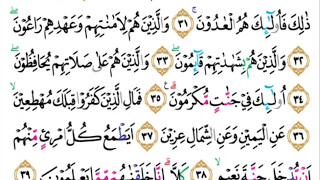 ذٰلِكَ فَأُولٰٓئِكَ هُمُ الْعٰدُوْنَ ۚ ٣١ وَالَّذِيْنَ هُمْ لِاَمٰنٰتِهِمْ وَعَهْدِهِمْ رَاعُوْنَ ۖ
٣٢ وَالَّذِيْنَ هُمْ بِشَهٰدٰتِهِمْ قَاۤىِٕمُوْنَ ۖ ٣٣ وَالَّذِيْنَ هُمْ عَلٰى صَلَاتِهِمْ يُحَافِظُوْنَ ۗ
٣٤ اُولٰۤىِٕكَ فِيْ جَنّٰتٍ مُّكْرَمُوْنَ ۗ ٣٥ فَمَالِ الَّذِيْنَ كَفَرُوْا قِبَلَكَ مُهْطِعِيْنَ ۙ
٣٦ عَنِ الْيَمِيْنِ وَعَنِ الشِّمَالِ عِزِيْنَ ٣٧ اَيَطْمَعُ كُلُّ امْرِئٍ مِّنْهُمْ
اَنْ يُّدْخَلَ جَنَّةَ نَعِيْمٍ ۙ ٣٨ كَلَّا ۗ اِنَّا خَلَقْنٰهُمْ مِّمَّا يَعْلَمُوْنَ ٣٩